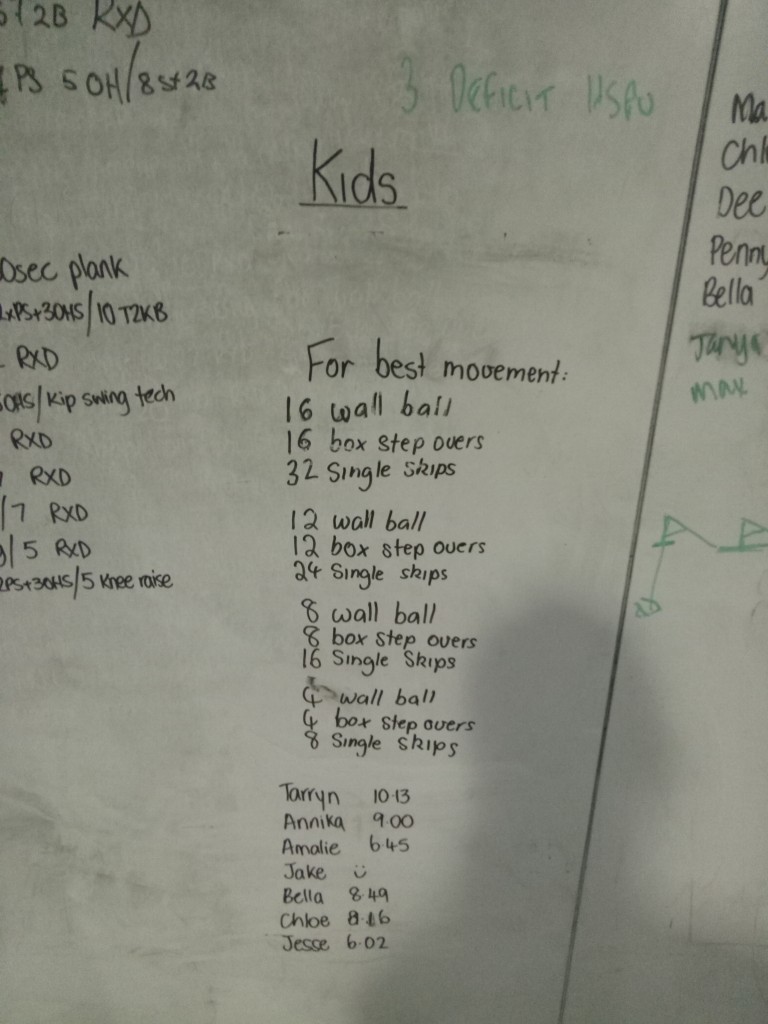 2B RXD
PS 5 OH/8 st 2B
3 DEFICIT HSPU
Kids
0sec plank
PS+3OHS/10 T2KB
RXD
OHS/Kip swing tech
RXD
RXD
/7 RXD
/5 RXD
2PS+3OHS/5 Knee raise
For best movement:
16 wall ball
16 box step overs
32 Single Skips
12 wall ball
12 box step overs
24 Single skips
8 wall ball
8 box step overs
16 Single Skips
4 wall ball
4 box step overs
8 Single Skips
Tarryn 10.13
Annika 9.00
Amalie 6.45
Jake ü
Bella 8.49
Chloe 8.16
Jesse 6.02
Ma
Chl
Dee
Penny
Bella
Tanya
max